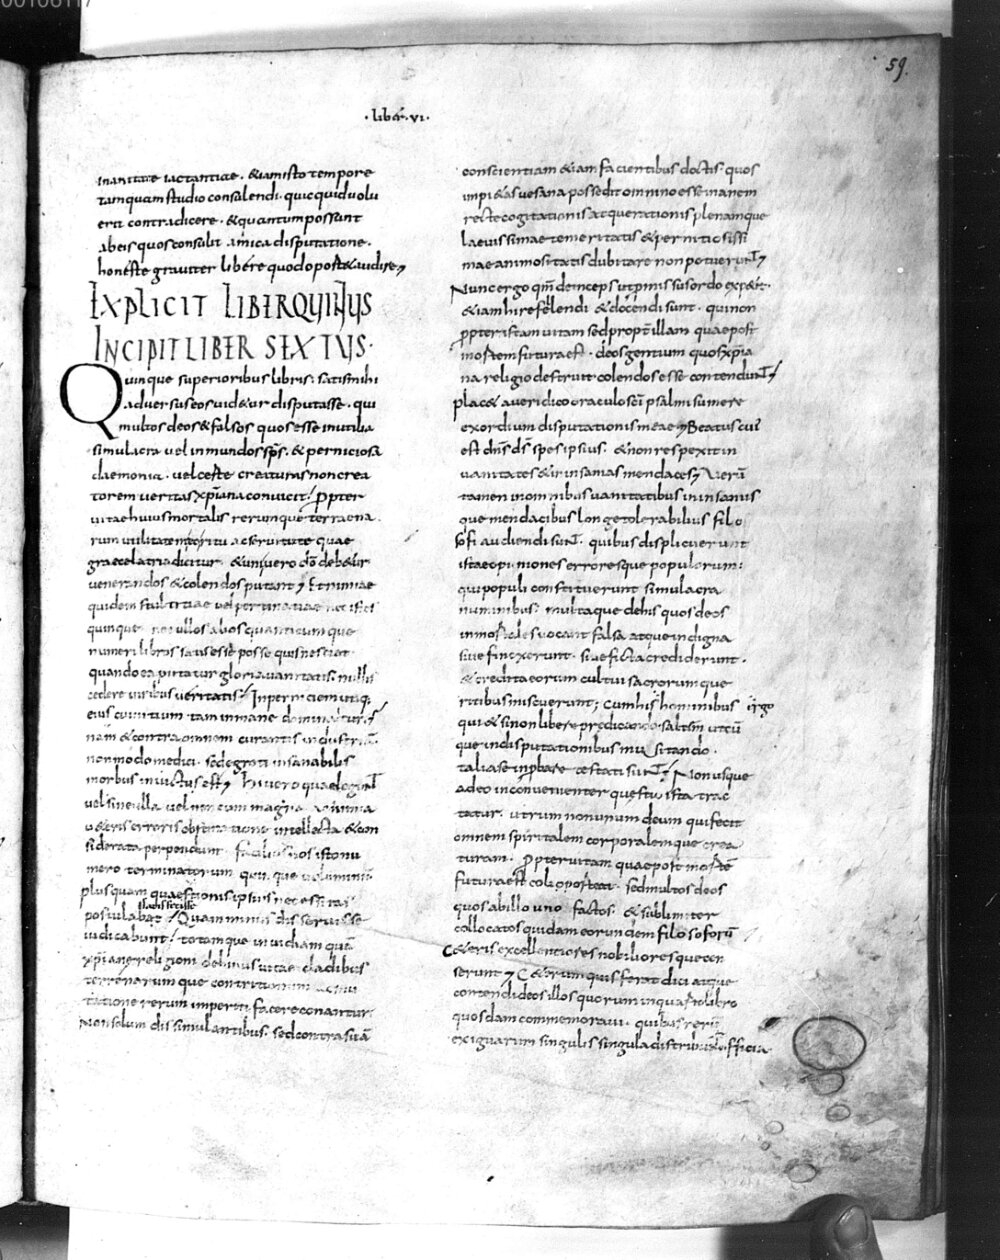 59.
·liber·vi·
inanitate iactantiae. &iamisto tempore
tamquam studio consulendi. quicquid uolu
erit contradicere. &quantum possunt
abeis quos consulit amica disputatione.
honeste grauiter libere quod oport& audire,
EXPLICIT LIBER QUINTUS
INCIPIT LIBER SEXTUS·
Quinque superioribus libris. satis mihi
aduersus eos uid&ur disputasse. qui
multos deos & falsos quos esse inutilia
simulacra uel inmundos sp̄s. & perniciosa
daemonia. uel certe creaturas non crea
torem ueritas xp̄iana conuicit. Propter
uitae huius mortalis rerumque terrena
rum utilitatem eo ritu ac seruitute quae
graece latria dicitur. & uni uero dō deb&ur
uenerandos & colendos putant, Et nimiae
quidem stultitiae uel pertinaciae nec istos
quinque nec ullos alios quanticumque
numeri libros satis esse posse quis nesciat.
quando ea putatur gloria uanitatis. nullis
cedere uiribus ueritatis. In perniciem utiq;
eius cui uitium tam inmane dominatur.
nam & contra omnem curantis industriā
non modo medici. sed egroti insanabilis
morbus inuictus est, hi uero quae legunt
uel sine ulla uel non cum magna
ueteris erroris obstinatione intellecta & con
siderata perpendunt. facilius nos isto nu
mero terminatorum quinque uoluminū
plus quam quaestionis ipsius necessitas
postulabat Quam minus dis seruisse
iudicabunt. totamque inuidiam quā
xp̄iane religioni de huius uitae cladibus
terrenarumque contritione ac mu
tatione rerum imperiti facere conantur.
non solum dissimulantibus. sed contra suā
conscientiam &iam facientibus doctis. quos
impi&as uesana possedit omnino esse inanem
recte cogitationis atque rationis plenamque
laeuissimae temeritatis & pernitiosissi
mae animositatis dubitare non poterunt,
Nunc ergo qm̄ deinceps ut pmissus ordo exp&it.
&iam hi refellendi & docendi sunt. qui non
ppter istam uitam sed propter illam quae post
mortem futura est. deos gentium quos xp̄ia
na religio destruit colendos esse contendunt,
plac& a ueridico oraculo sc̄i psalmi sumere
exordium disputationis meae, Beatus cui
est dn̄s dē spes ipsius. & non respexit in
uanitates & insanias mendaces, Uerū
tamen in omnibus uanitatibus insanis
que mendacibus longe tolerabilius filo
sofi audiendi sunt. quibus displicuerunt
istae opiniones erroresque populorum.
qui populi constituerunt simulacra
numinibus. multaque de his quos deos
inmortales uocant falsa atque indigna
siue finxerunt. siue ficta crediderunt.
& credita eorum cultui sacrorumque
ritibus miscuerunt; Cum his hominibus
qui & si non libere predicando. saltem utcū
que in disputationibus mussitando.
talia se inprobare testati sunt, Non usque
adeo inconuenienter questio ista trac
tatur. utrum non unum deum qui fecit
omnem spiritalem corporalemque crea
turam. Propter uitam quae post mortē
futura est coli oporteat. sed multos deos
quos ab illo uno factos. & sublimiter
collocatos quidam eorundem filosoforū
C&eris excellentiores nobilioresque cen
serunt, C&erum quis ferat dici atque
contendi deos illos quorum in quarto libro
quosdam commemoraui. quibus rerū
exiguarum singulis singula distribuunt officia